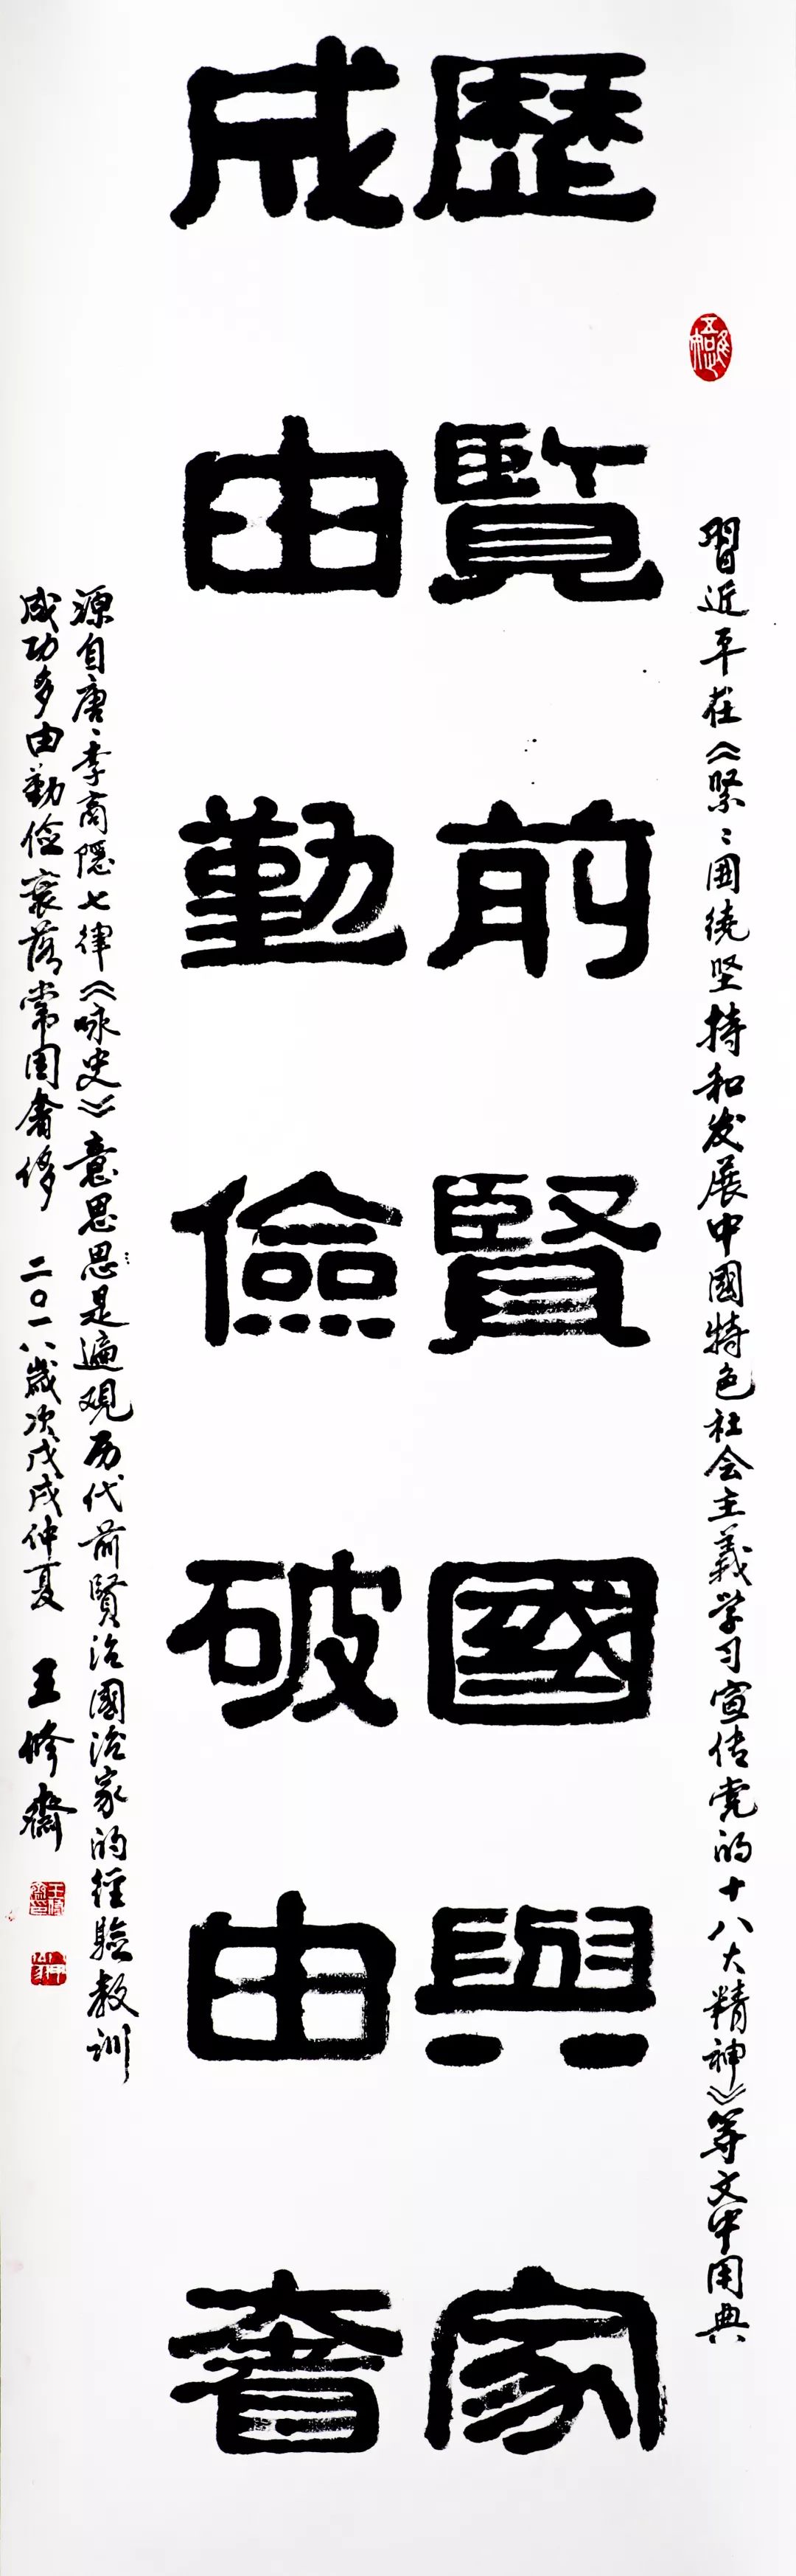 習近平在《緊〻围繞坚持和发展中國特色社会主義学习宣传党的十八大精神》等文中用典
歷覽前賢國與家
成由勤儉破由奢
源自唐、李商隱七律《咏史》意思思是遍观历代前賢治國治家的经驗教训
成功多由勤俭衰落常因奢侈 二〇一八歲次戊戌仲夏 王修齋
王修齋印